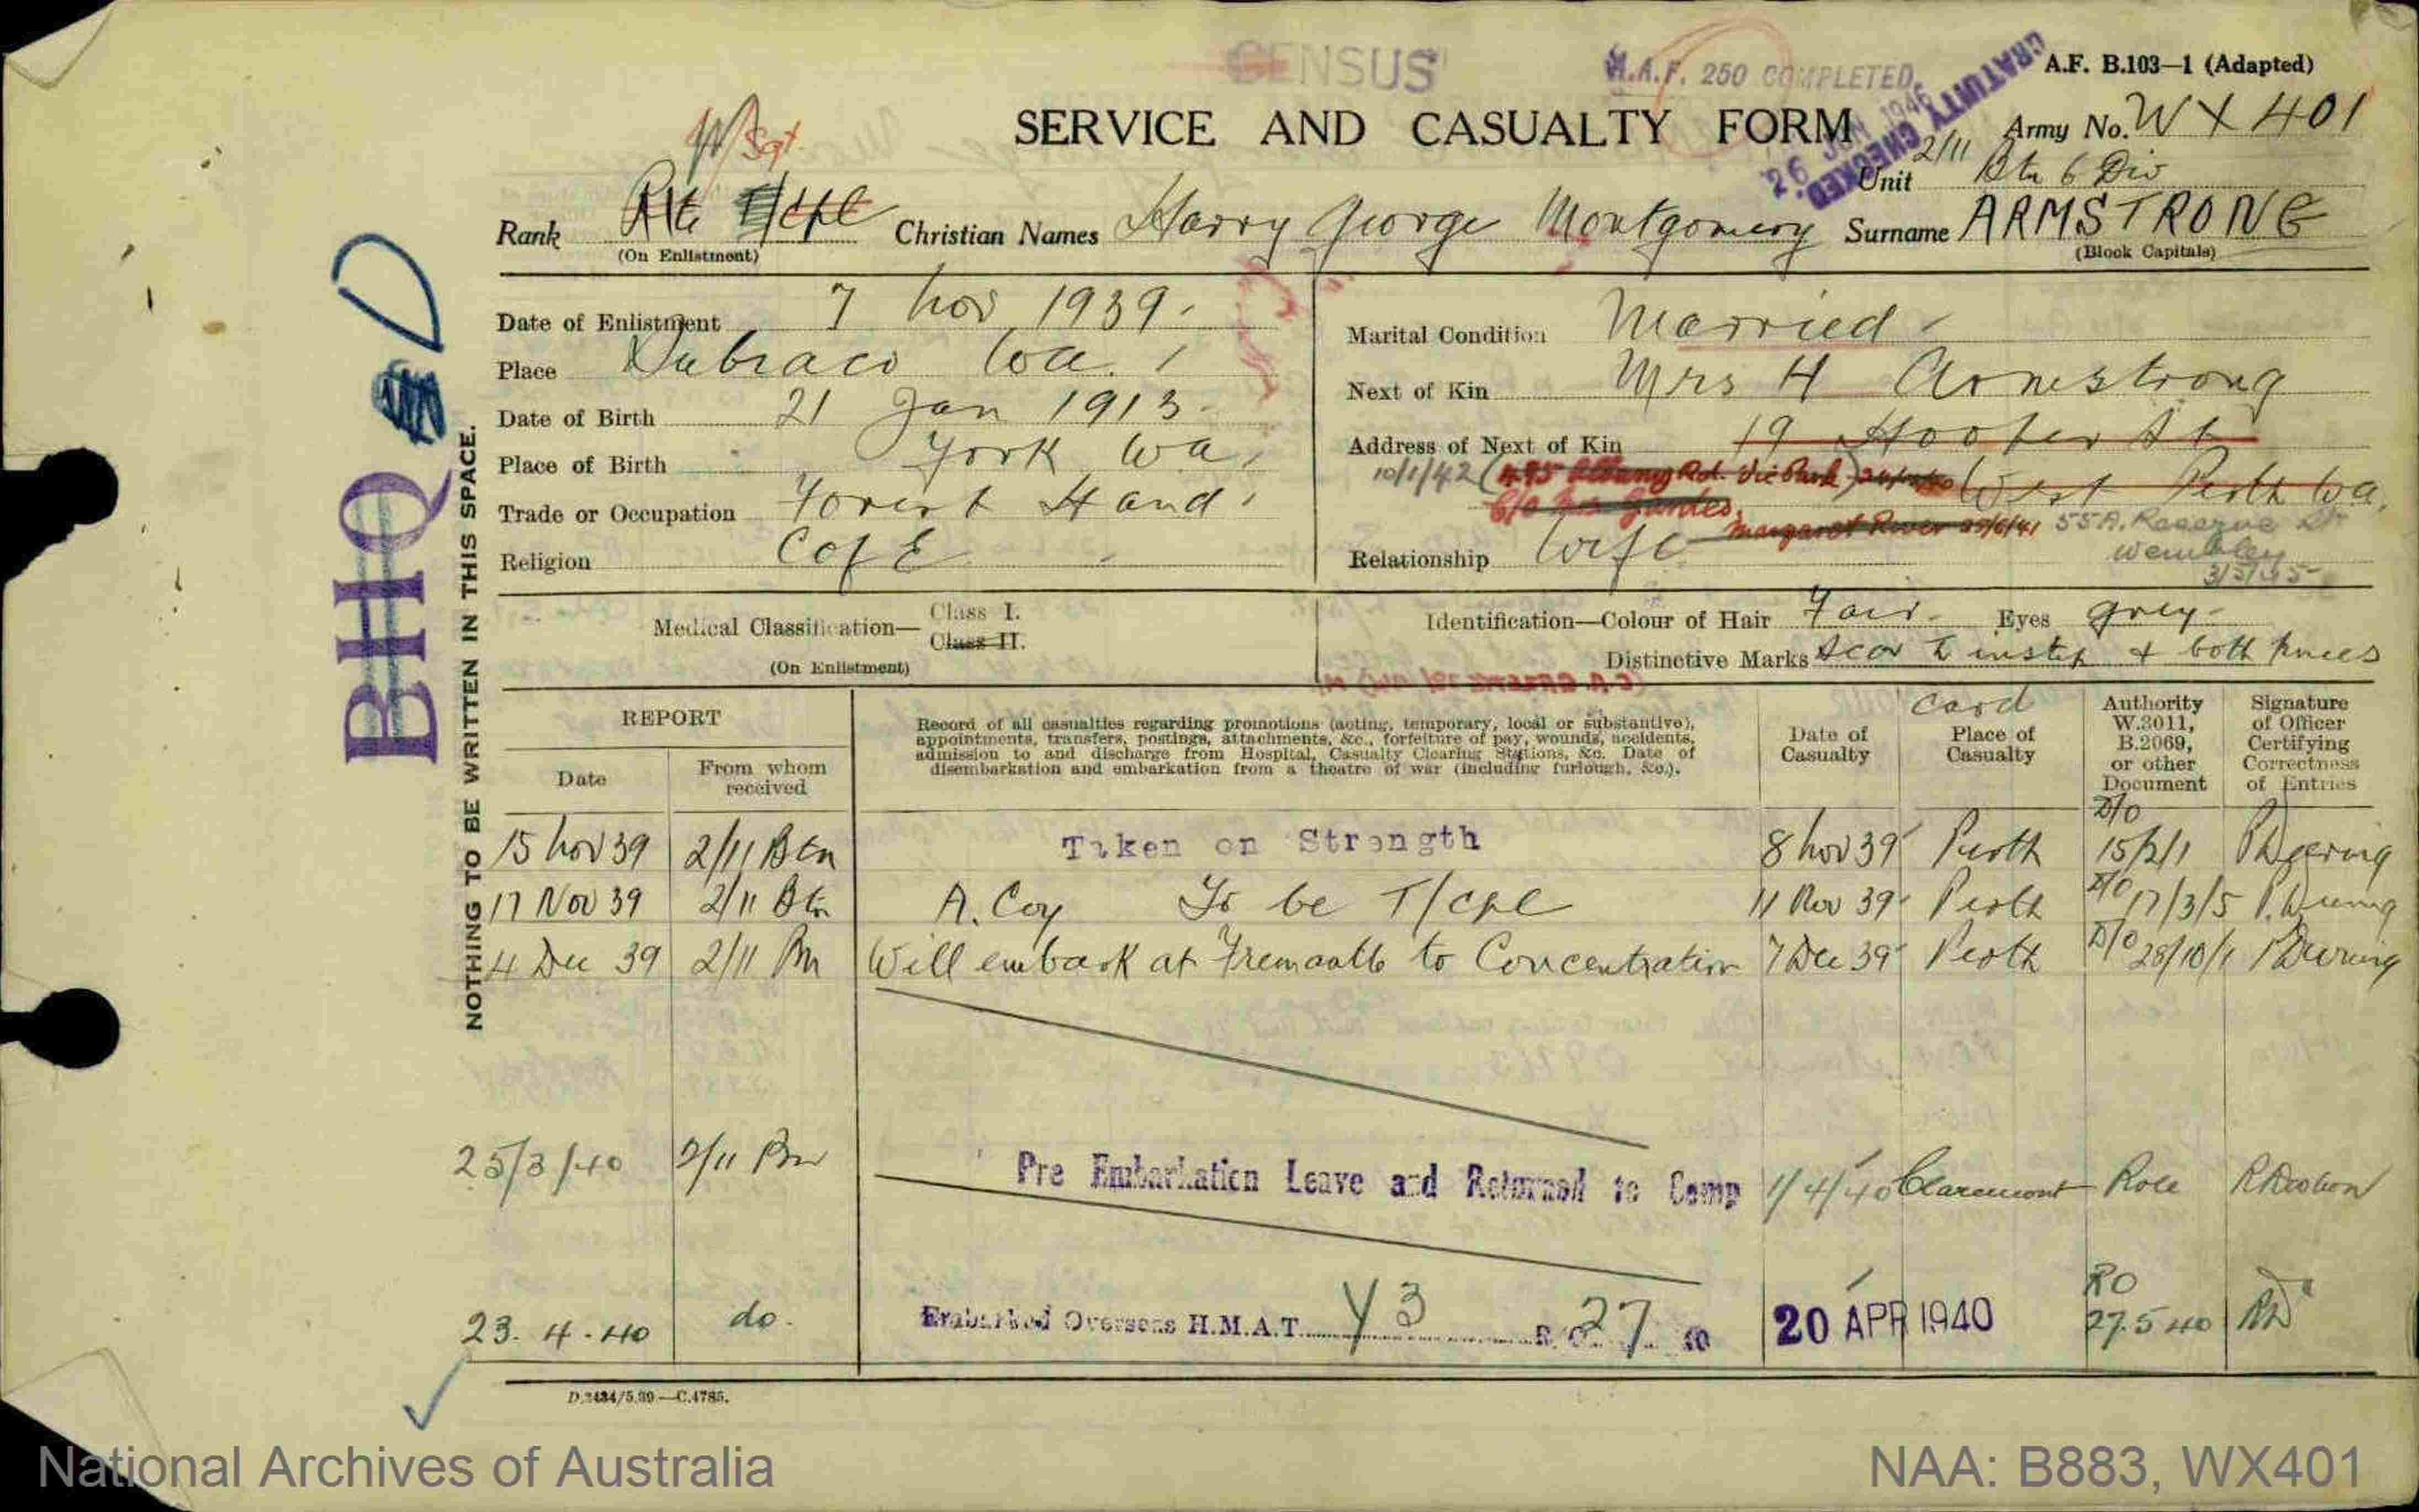 CENSUS
W.A.F. 250 COMPLETED
GRATUITY CHECKED
26 JUN 1946
A.F. B.103—1 (Adapted)
SERVICE AND CASUALTY FORM
Army No. WX 401
W/Sgt.
Unit 2/11 Btn 6 Div
Rank Pte T/Cpl Christian Names Harry George Montgomery Surname ARMSTRONG
(On Enlistment) (Block Capitals)
Date of Enlistment 7 Nov 1939.
Place Subiaco Wa.
Date of Birth 21 Jan 1913
Place of Birth York Wa.
Trade or Occupation Forest Hand
Religion C of E
Marital Condition Married
Next of Kin Mrs H Armstrong
Address of Next of Kin 19 Hooper St
10/1/42 (495 Albany Rd. Vic Park) West Perth Wa.
C/o
Margaret River 25/6/41 55A. Reserve St
Wembley
Relationship Wife
Medical Classification— Class I.
Class II.
(On Enlistment)
Identification—Colour of Hair Fair Eyes grey
Distinctive Marks Scar L instep & both knees
NOTHING TO BE WRITTEN IN THIS SPACE.
BHQ
D
REPORT
Date
From whom received
Record of all casualties regarding promotions (acting, temporary, local or substantive),
appointments, transfers, postings, attachments, &c., forfeiture of pay, wounds, accidents,
admission to and discharge from Hospital, Casualty Clearing Stations, &c. Date of
disembarkation and embarkation from a theatre of war (including furlough, &c.).
Date of Casualty
card
Place of Casualty
Authority W.3011, B.2069, or other Document
Signature of Officer Certifying Correctness of Entries
15 Nov 39 2/11 Btn Taken on Strength 8 Nov 39 Perth D/O 15/2/1
17 Nov 39 2/11 Btn A. Coy To be T/Cpl 11 Nov 39 Perth D/O 17/3/5
4 Dec 39 2/11 Bn Will embark at Fremantle to Concentration 7 Dec 39 Perth D/O 28/10/1
25/3/40 2/11 Bn Pre Embarkation Leave and Returned to Camp 1/4/40 Claremont Role
23.4.40 do. Embarked Overseas H.M.A.T. Y3 R.O. 27 40 20 APR 1940 RO 27.5.40
D.2484/5.39.—C.4785.
National Archives of Australia
NAA: B883, WX401